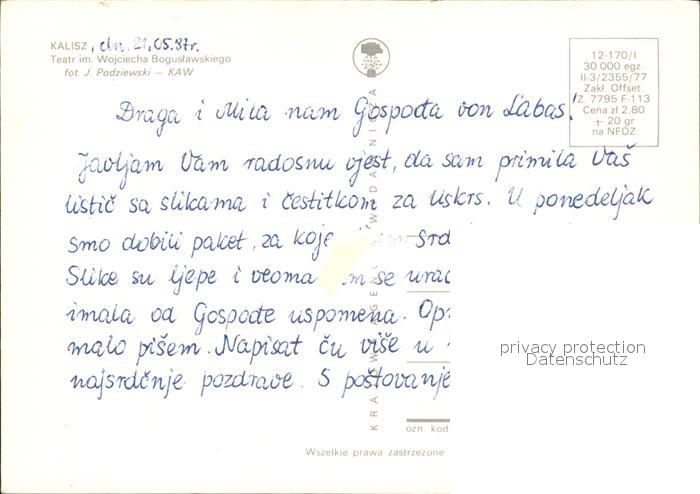 KALISZ, dn. 21.05.87r.
Teatr im. Wojciecha Bogusławskiego
fot. J. Podziewski — KAW
12-170/I
30 000 egz.
II-3/2355/77
Zakł. Offset.
Z. 7795 F-113
Cena zł 2,80
+ 20 gr
na NFOZ
Draga i Mila nam Gospođa von Labas!
Javljam Vam radosnu vjest, da sam primila Vaš
listić sa slikama i čestitkom za Uskrs. U ponedeljak
smo dobili paket, za koje
Slike su ljepe i veoma mi se
imala od Gospođe uspomena.
malo pišem. Napisat ću više u
najsrdčnje pozdrave. S poštovanje
WYDAWNICZA
ozn. kod.
Wszelkie prawa zastrzeżone
privacy protection
Datenschutz